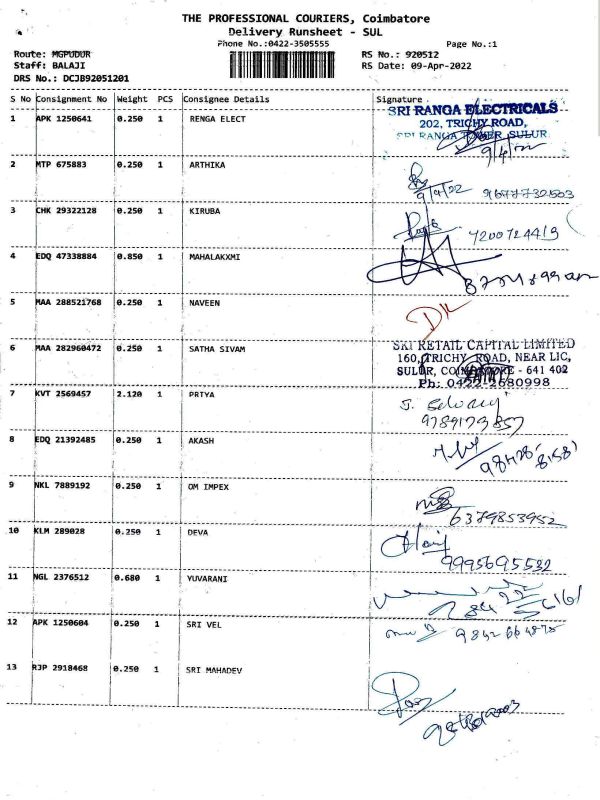 THE PROFESSIONAL COURIERS, Coimbatore
Delivery Runsheet - SUL
Phone No.:0422-3505555
Page No.:1
Route: MGPUDUR
RS No.: 920512
Staff: BALAJI
RS Date: 09-Apr-2022
DRS No.: DCJB92051201
S No Consignment No Weight PCS Consignee Details Signature
SRI RANGA ELECTRICALS
1 APK 1250641 0.250 1 RENGA ELECT
202, TRICHY ROAD,
SRI RANGA TOWER, SULUR
9/4/22
2 MTP 675883 0.250 1 ARTHIKA
9/4/22 9677732503
3 CHK 29322128 0.250 1 KIRUBA
7200724419
4 EDQ 47338884 0.850 1 MAHALAKXMI
5 MAA 288521768 0.250 1 NAVEEN
DK
SRI RETAIL CAPITAL LIMITED
6 MAA 282960472 0.250 1 SATHA SIVAM
160, TRICHY ROAD, NEAR LIC,
SULUR, COIMBATORE - 641 402
Ph: 0422-2680998
7 KVT 2569457 2.120 1 PRIYA
9789173857
8 EDQ 21392485 0.250 1 AKASH
9 NKL 7889192 0.250 1 OM IMPEX
6379853952
10 KLM 289028 0.250 1 DEVA
9995695532
11 NGL 2376512 0.680 1 YUVARANI
12 APK 1250604 0.250 1 SRI VEL
9842664878
13 RJP 2918468 0.250 1 SRI MAHADEV